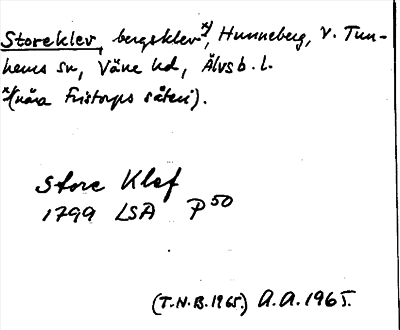 Storeklev, bergsklev x), Hunneberg, V. Tun-
hems sn, Väne hd, Älvsb. l.
x) (nära Fristorps säteri).
Store Klef
1799 LSA P50
(T.N.B. 1965.) A.A. 1965.